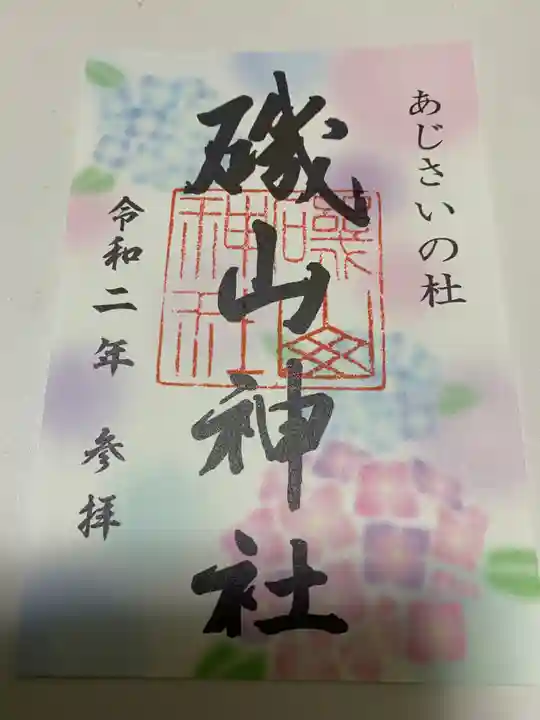 あじさいの杜
磯山神社
磯山神社
令和二年 参拝